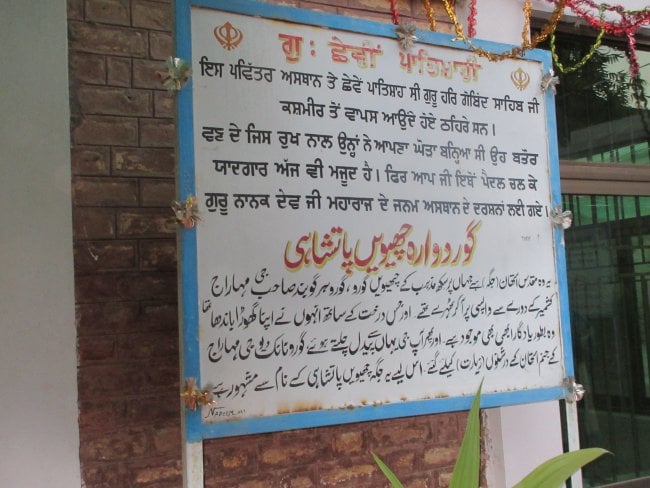 ਗੁ: ਛੇਵੀਂ ਪਾਤਿਸ਼ਾਹੀ
ਇਸ ਪਵਿੱਤਰ ਅਸਥਾਨ ਤੇ ਛੇਵੇਂ ਪਾਤਿਸ਼ਾਹ ਸ੍ਰੀ ਗੁਰੂ ਹਰਿ ਗੋਬਿੰਦ ਸਾਹਿਬ ਜੀ
ਕਸ਼ਮੀਰ ਤੋਂ ਵਾਪਸ ਆਉਂਦੇ ਹੋਏ ਠਹਿਰੇ ਸਨ।
ਵਣ ਦੇ ਜਿਸ ਰੁਖ ਨਾਲ ਉਨ੍ਹਾਂ ਨੇ ਆਪਣਾ ਘੋੜਾ ਬਨ੍ਹਿਆ ਸੀ ਉਹ ਬਤੌਰ
ਯਾਦਗਾਰ ਅੱਜ ਵੀ ਮਜੂਦ ਹੈ। ਫਿਰ ਆਪ ਜੀ ਇਥੋਂ ਪੈਦਲ ਚਲ ਕੇ
ਗੁਰੂ ਨਾਨਕ ਦੇਵ ਜੀ ਮਹਾਰਾਜ ਦੇ ਜਨਮ ਅਸਥਾਨ ਦੇ ਦਰਸ਼ਨਾਂ ਲਈ ਗਏ।
گوردوارہ چھیویں پاتشاہی
یہ وہ مقدس استھان (جگہ) ہے جہاں پر سکھ مذہب کے چھیویں گورو، گورو ہر گوبند صاحب جی مہاراج
کشمیر کے دورے سے واپسی پر آ کر ٹھہرے تھے اور جس درخت کے ساتھ انہوں نے اپنا گھوڑا باندھا تھا
وہ بطور یادگار ابھی بھی موجود ہے۔ اور پھر آپ جی یہاں سے پیدل چلتے ہوئے گورو نانک دیو جی مہاراج
کے جنم استھان کے درشنوں (زیارت) کیلئے گئے۔ اس لیے یہ جگہ چھیویں پاتشاہی کے نام سے مشہور ہے